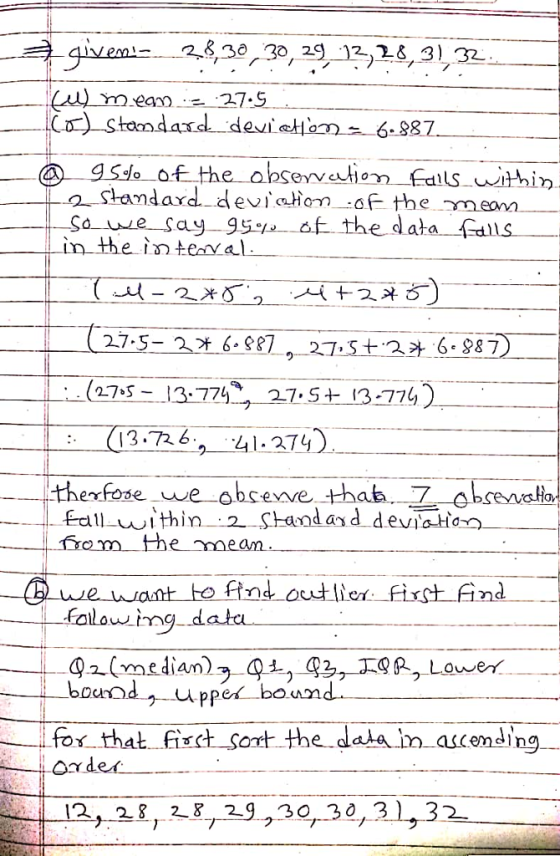 ⇒ given:- 28,30,30,29,12,28,31,32.
(μ) mean = 27.5
(σ) standard deviation = 6.887
ⓐ 95% of the observation falls within
2 standard deviation of the mean
so we say 95% of the data falls
in the interval.
(μ-2*σ, μ+2*σ)
(27.5-2*6.887, 27.5+2*6.887)
∴ (27.5-13.774, 27.5+13.774)
∴ (13.726, 41.274).
therfore we observe that 7 observation
fall within 2 standard deviation
from the mean.
ⓑ we want to find outlier. first find
following data
Q2(median), Q1, Q3, IQR, Lower
bound, upper bound.
for that first sort the data in ascending
order
12, 28, 28, 29, 30, 30, 31, 32